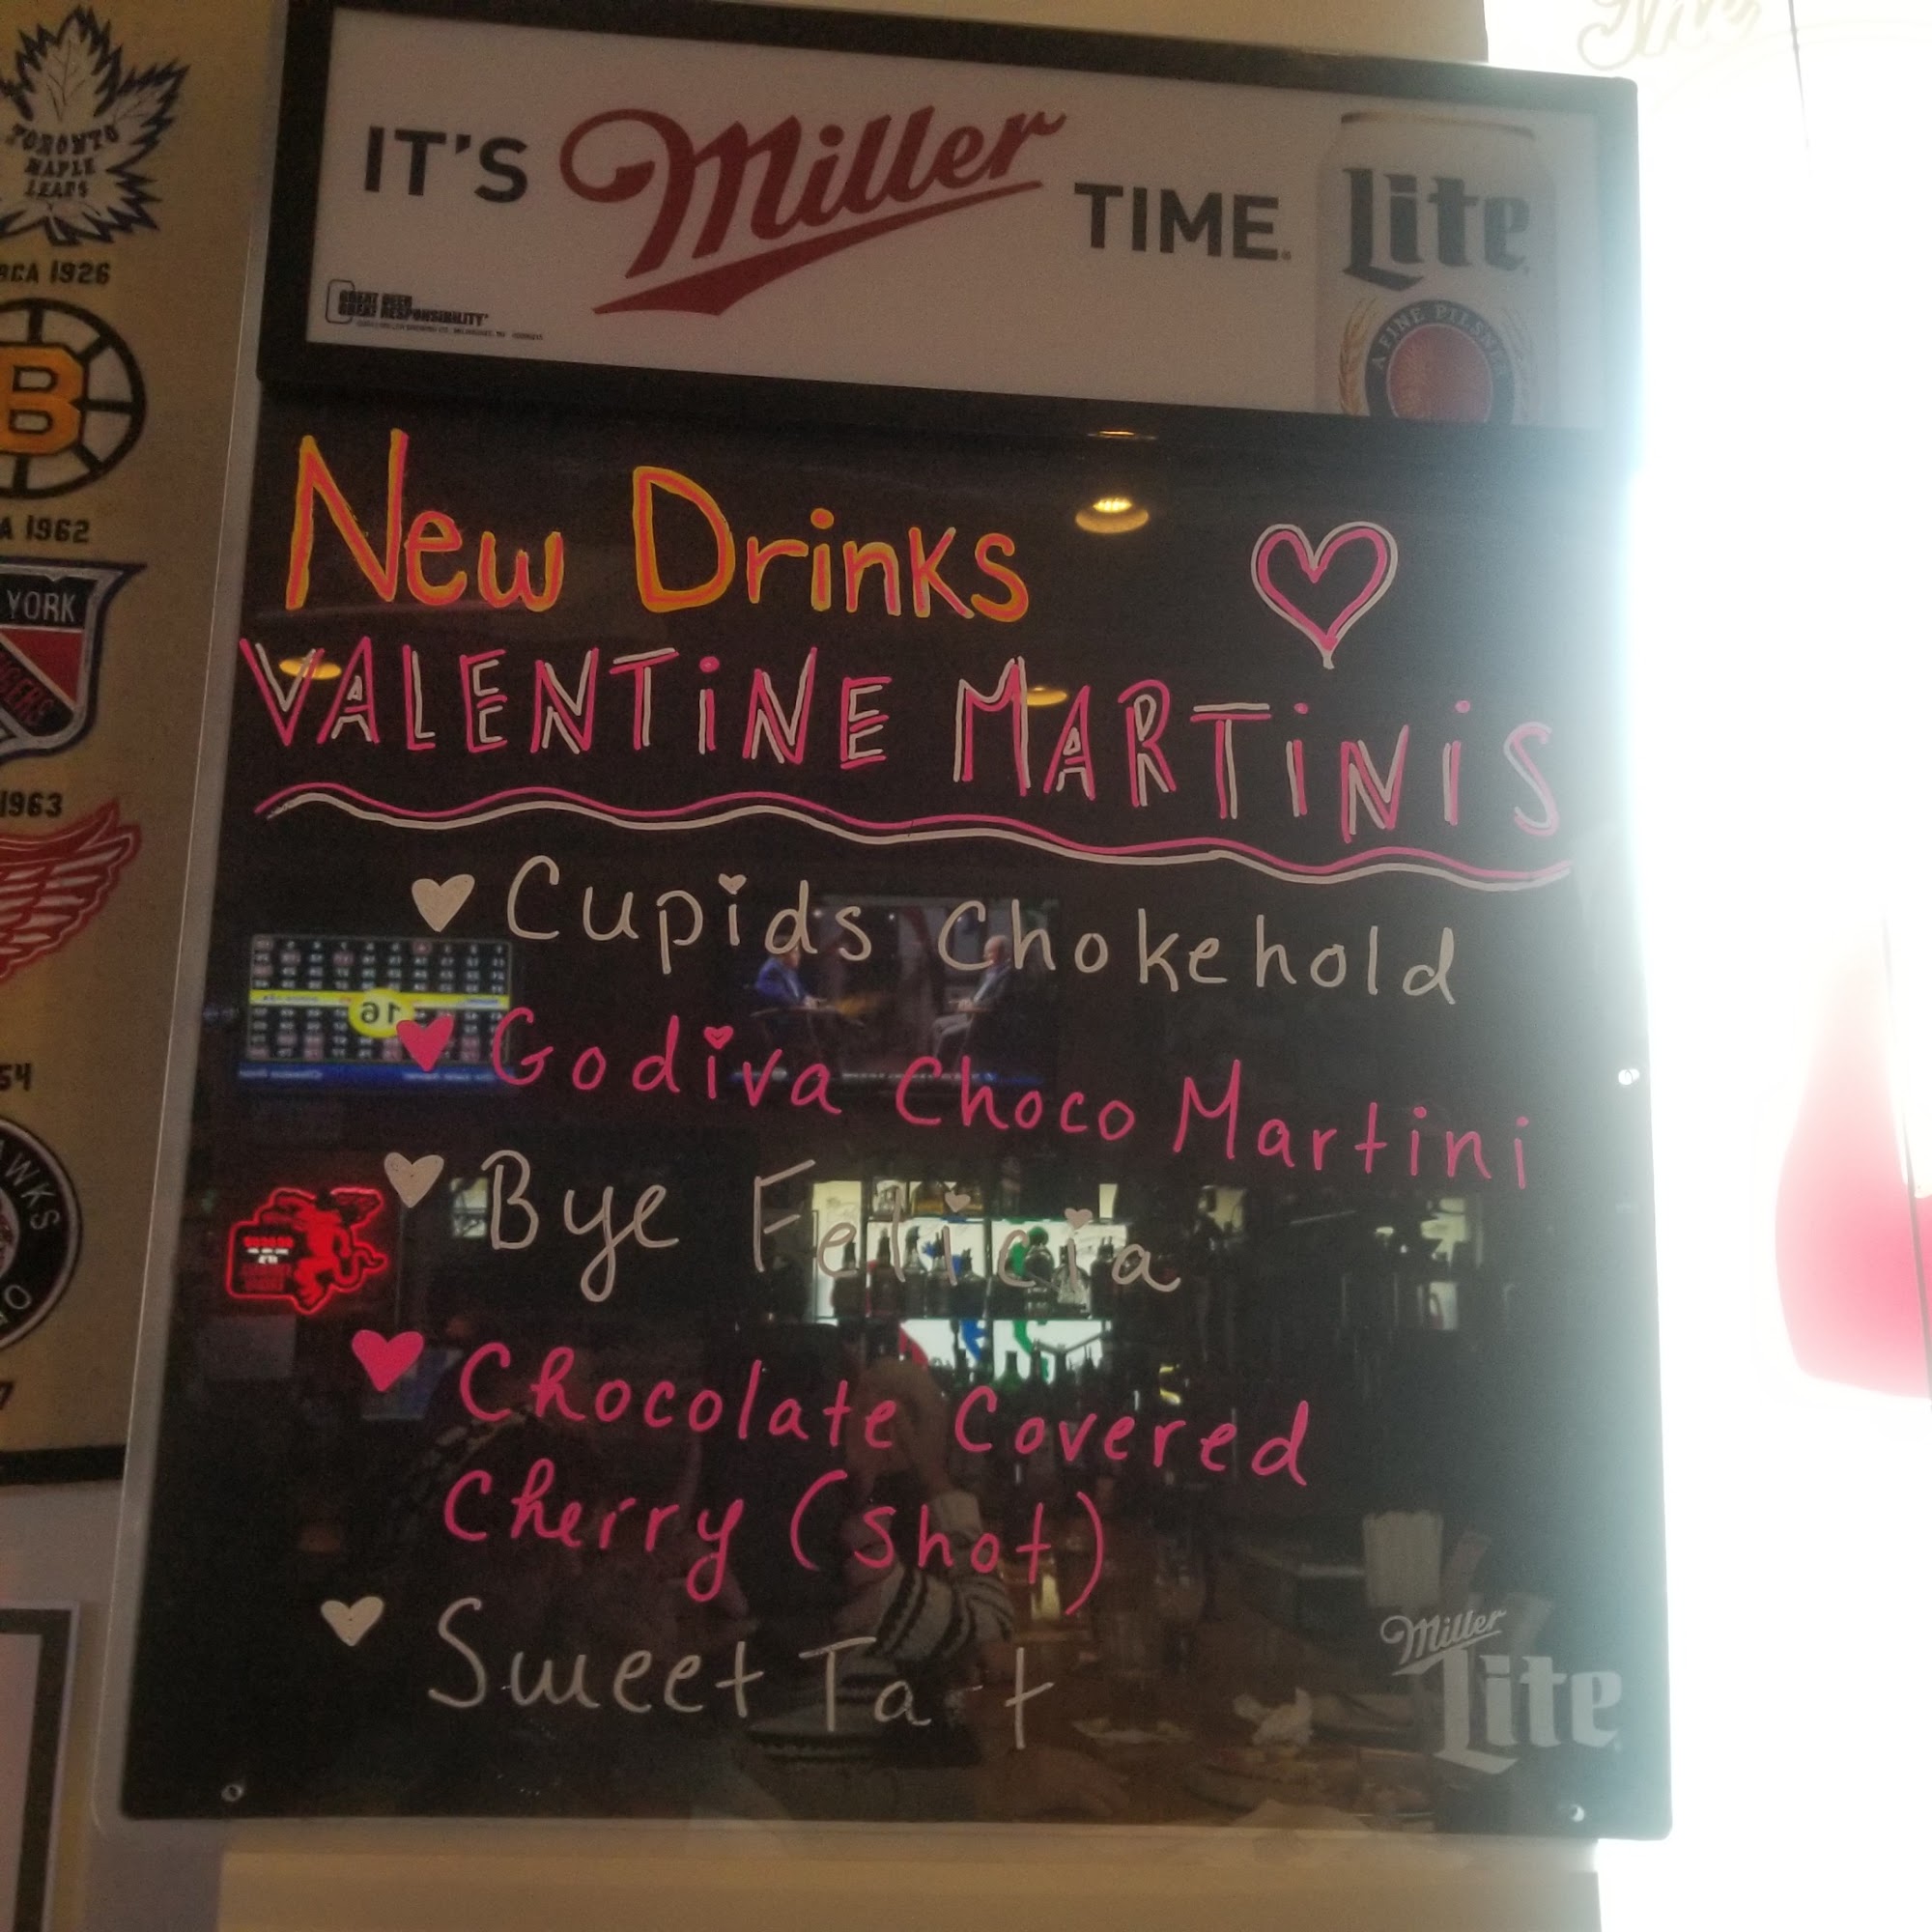 TORONTO
MAPLE
LEAFS
RCA 1926
B
A 1962
YORK
1963
54
AWKS
7
IT'S Miller TIME.
GREAT BEER
GREAT RESPONSIBILITY
Lite
A FINE PILSNER
New Drinks
VALENTINE MARTINIS
Cupids Chokehold
16
Godiva Choco Martini
Bye Felicia
Chocolate Covered
Cherry (shot)
Sweet Ta t
Miller
Lite